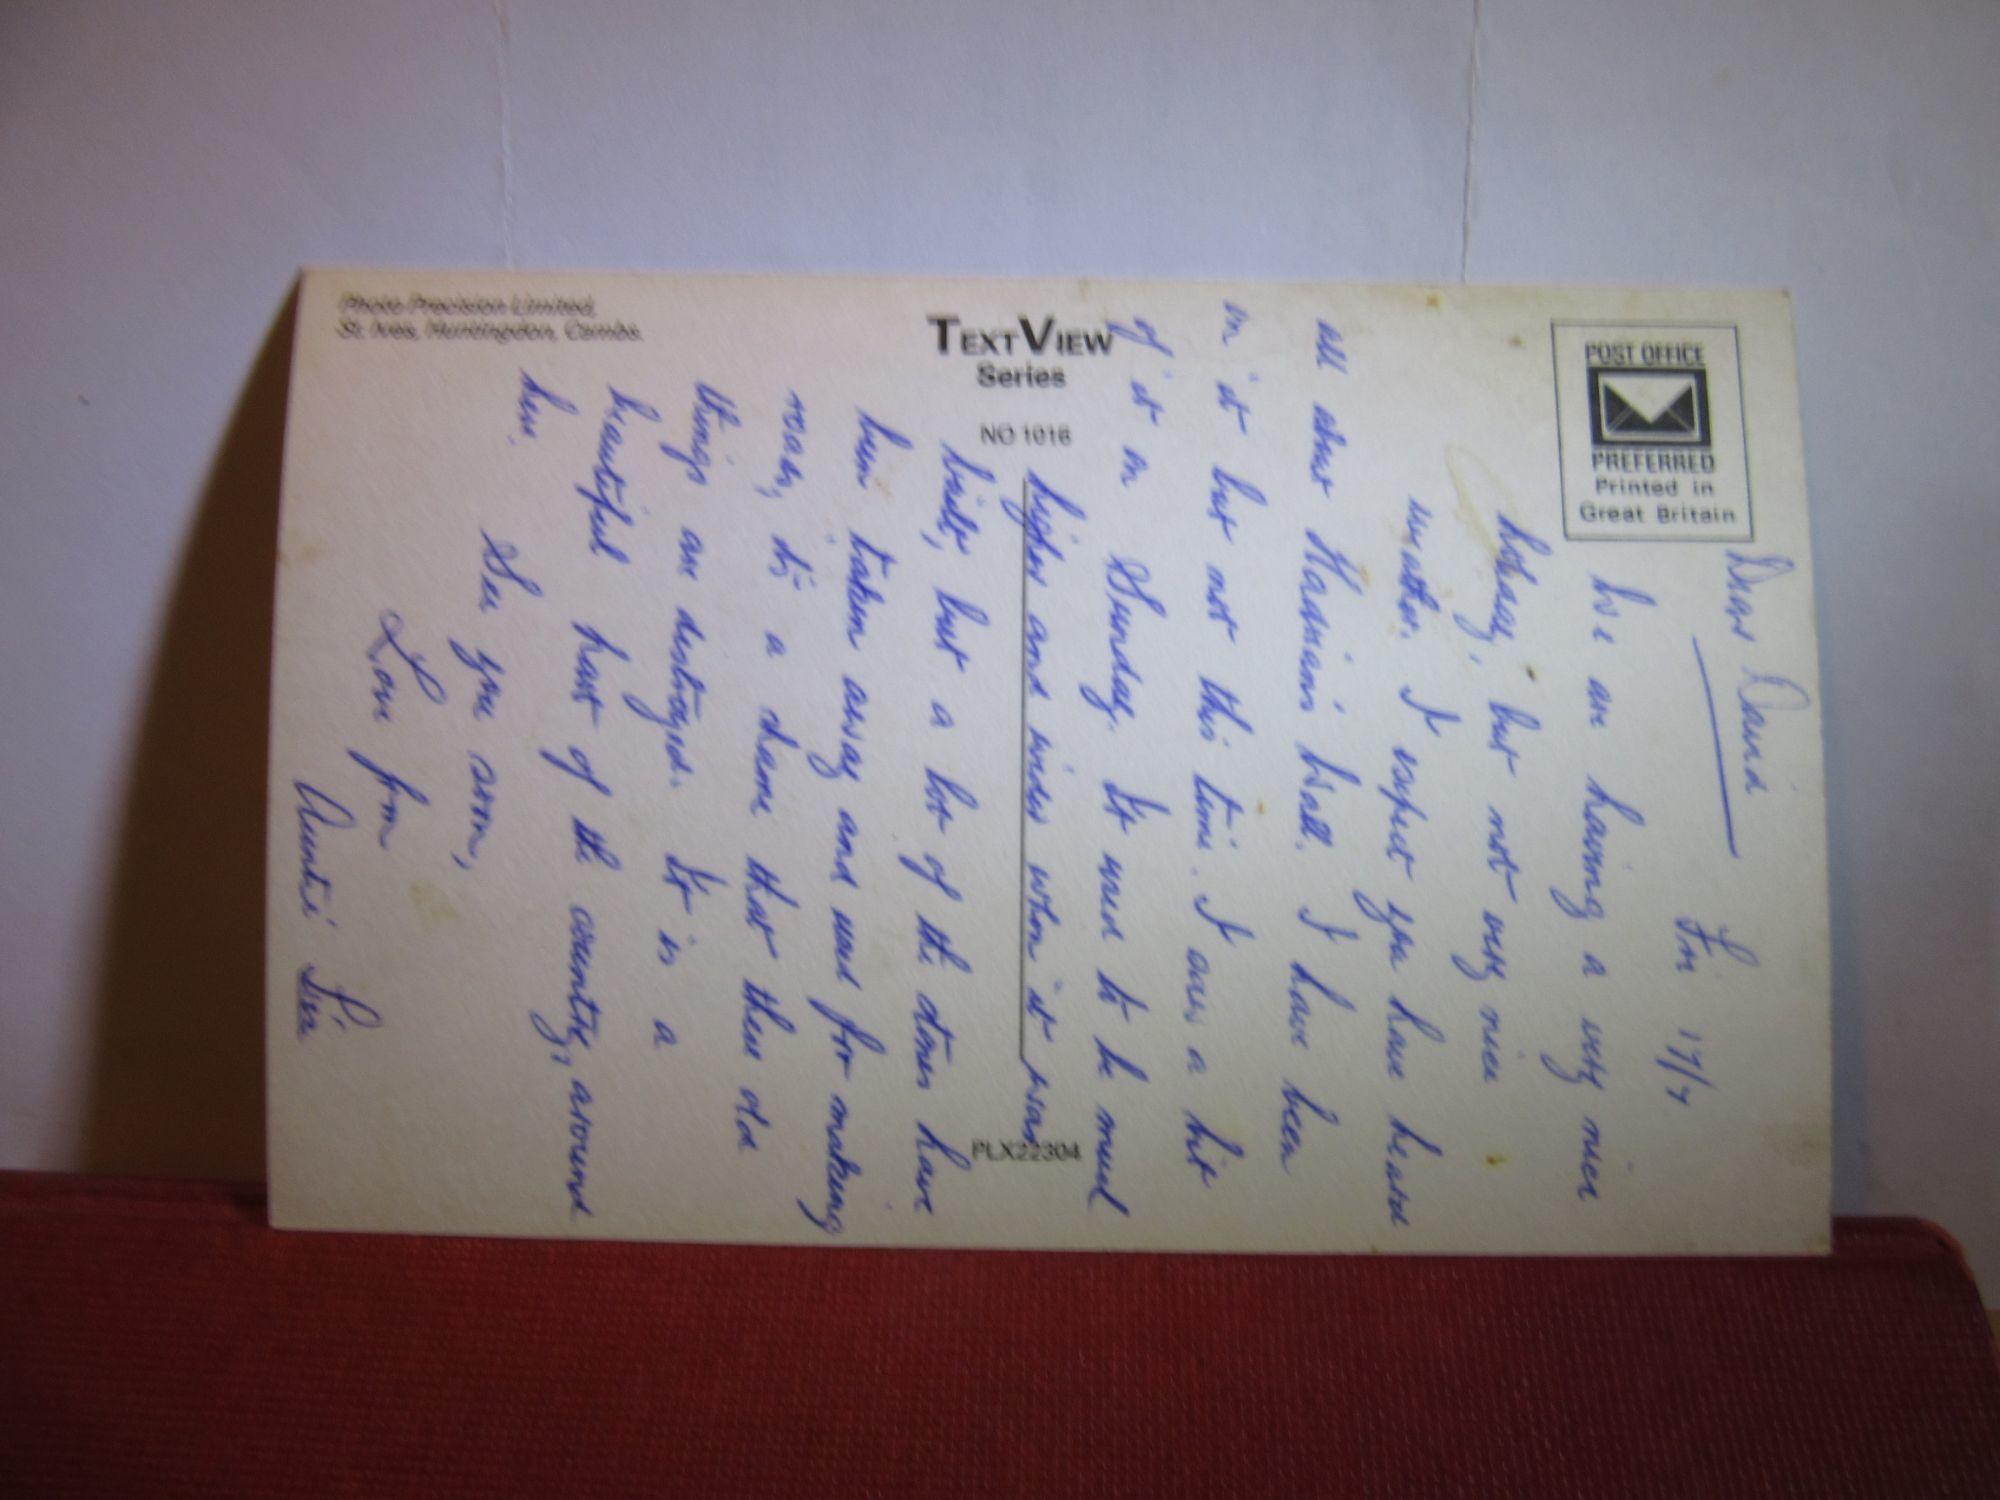 Photo Precision Limited,
St. Ives, Huntingdon, Cambs.
TEXTVIEW
Series
NO 1016
POST OFFICE
PREFERRED
Printed in
Great Britain
PLX22304
Dear David
Fri 17/7
We are having a very nice
holiday, but not very nice
weather. I expect you have heard
all about Hadrian's Wall. I have been
on it but not this time. I saw a bit
of it on Sunday. It used to be much
higher and wider when it was
built, but a lot of the stones have
been taken away and used for making
roads, its a shame that these old
things are destroyed. It is a
beautiful part of the country, around
here.
See you soon,
Love from
Auntie